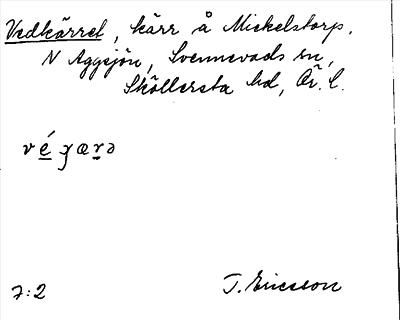 Vedkärret, kärr å Mickelstorp.
N Aggsjön, Svennevads sn,
Sköllersta hd, Ör. l.
7:2
T. Ericsson